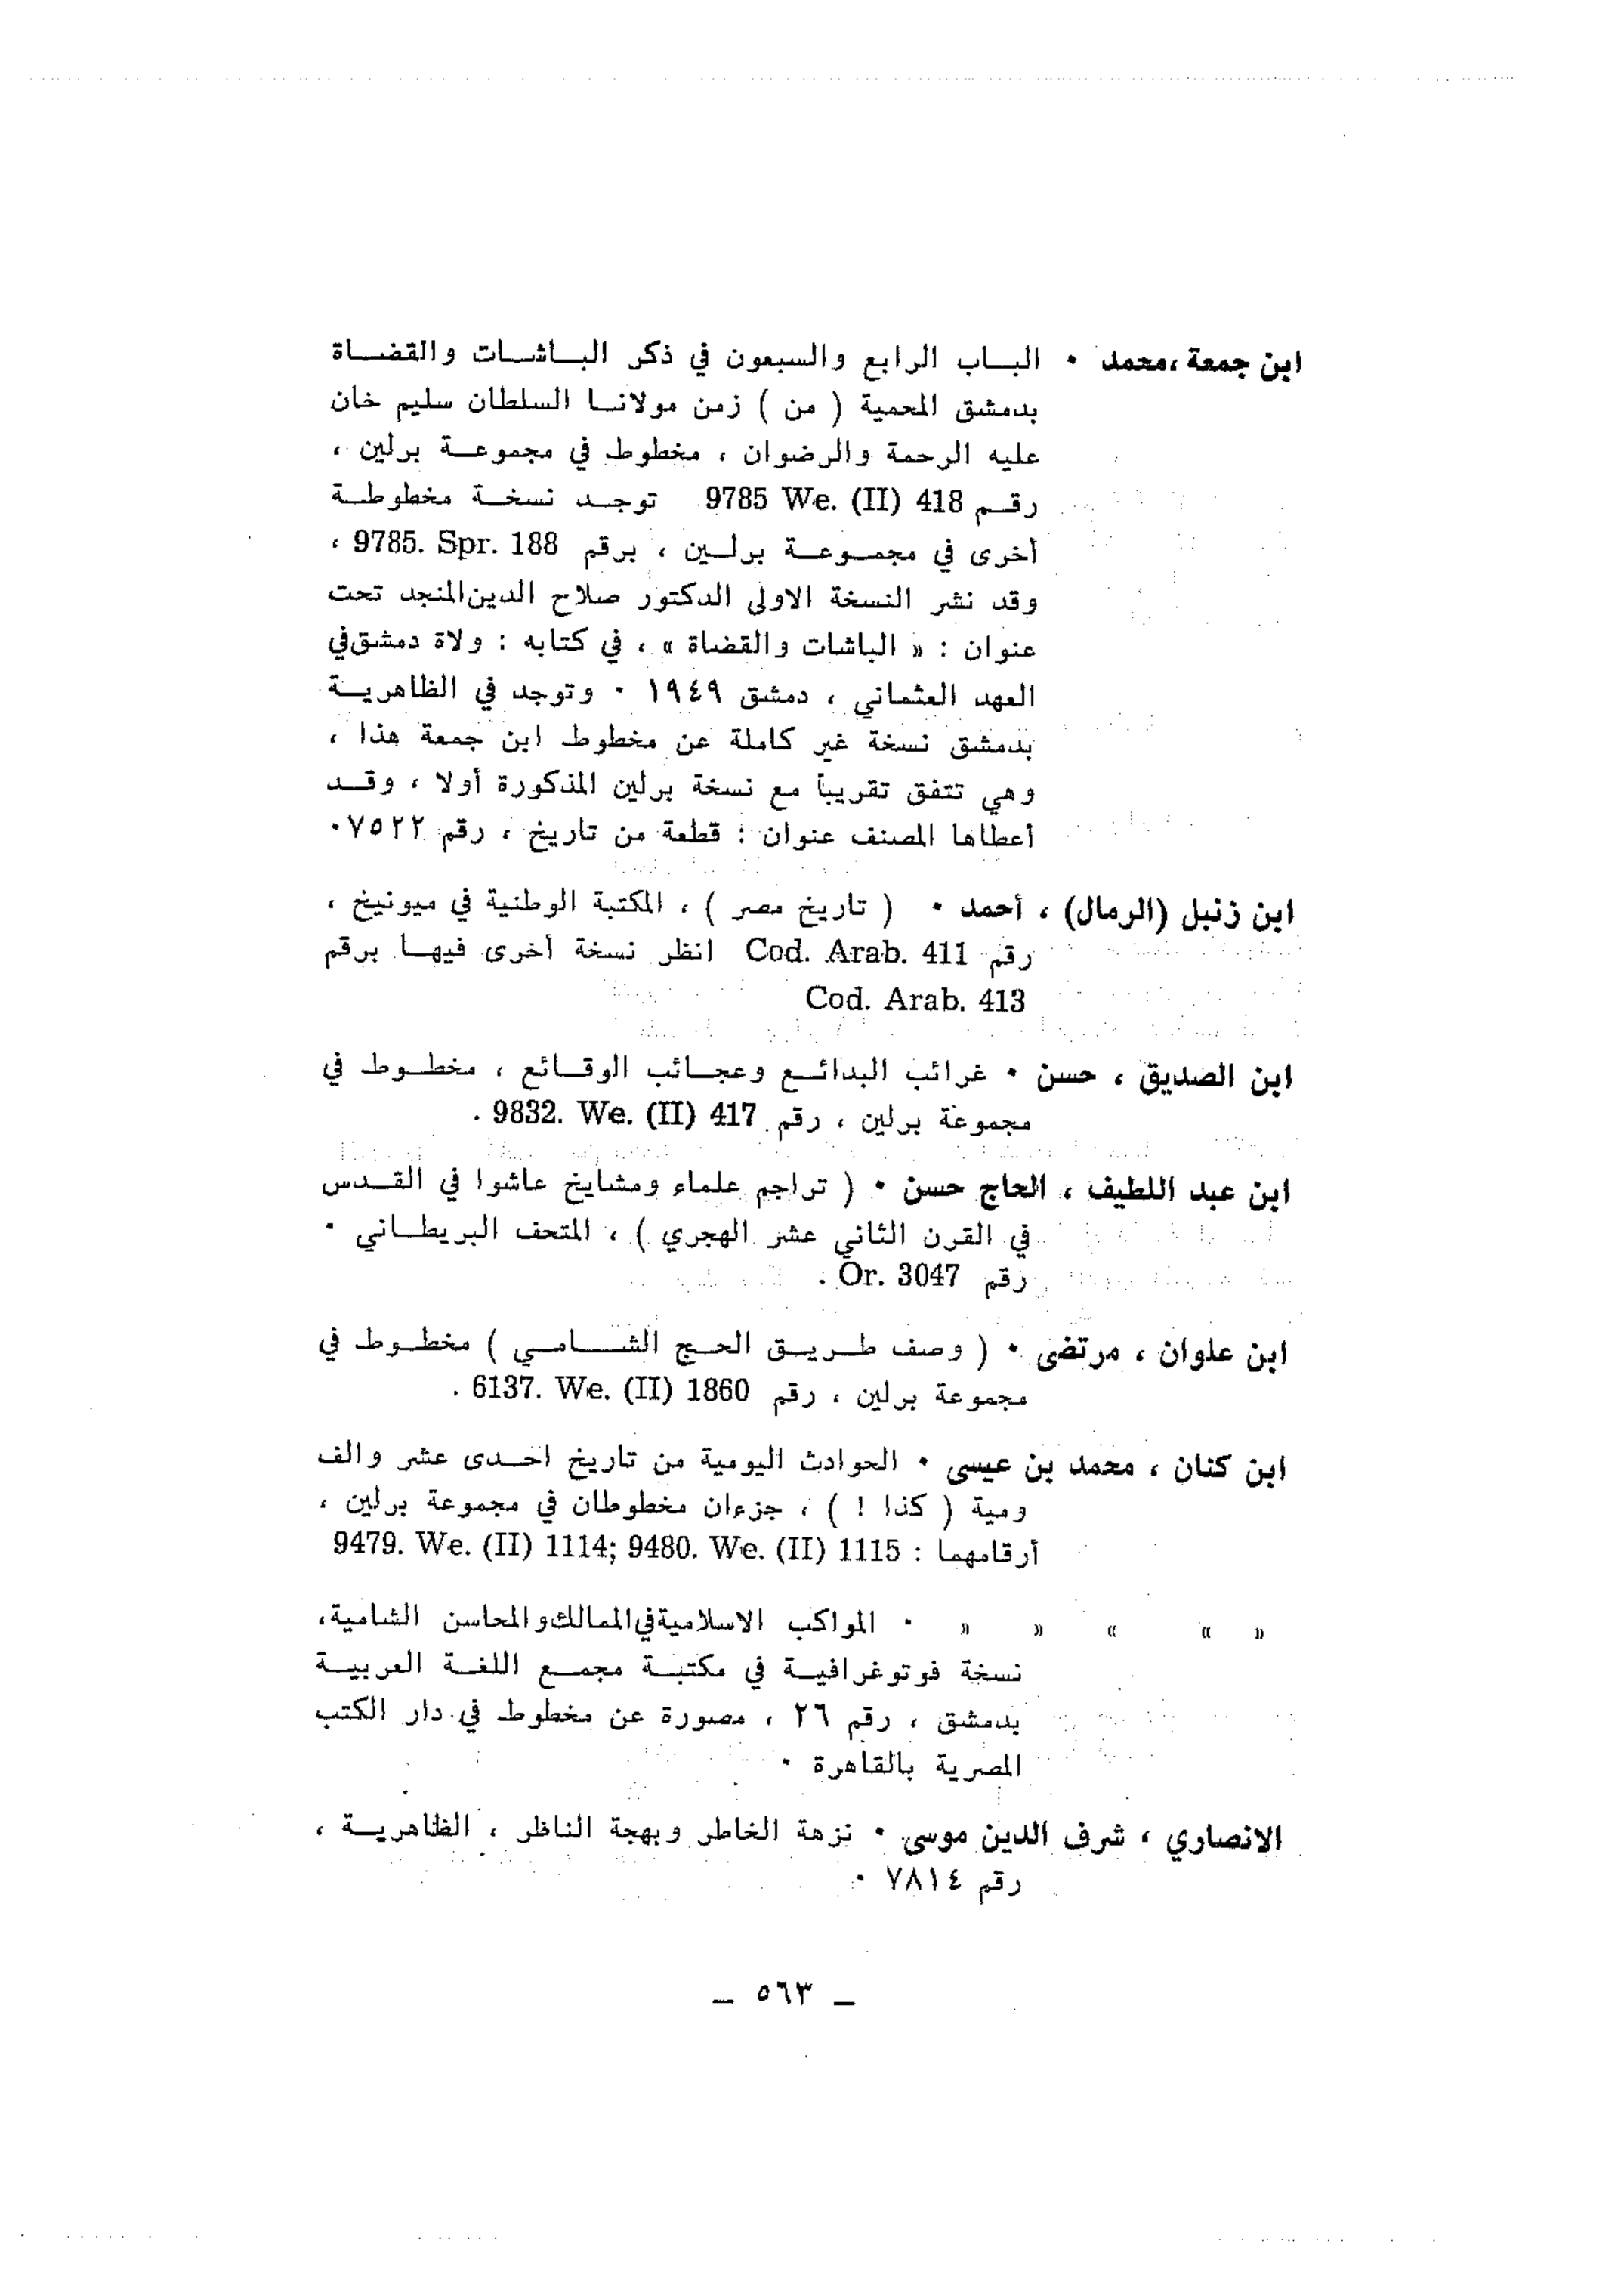 ابن جمعة ،محمد ٠ الباب الرابع والسبعون في ذكر الباشات والقضاة
بدمشق المحمية ( من ) زمن مولانا السلطان سليم خان
عليه الرحمة والرضوان ، مخطوط في مجموعة برلين ،
رقم 9785 We. (II) 418 توجد نسخة مخطوطة
أخرى في مجموعة برلين ، برقم 9785. Spr. 188 ،
وقد نشر النسخة الاولى الدكتور صلاح الدين المنجد تحت
عنوان : « الباشات والقضاة » ، في كتابه : ولاة دمشق في
العهد العثماني ، دمشق ١٩٤٩ ٠ وتوجد في الظاهرية
بدمشق نسخة غير كاملة عن مخطوط ابن جمعة هذا ،
وهي تتفق تقريباً مع نسخة برلين المذكورة أولا ، وقد
أعطاها المصنف عنوان : قطعة من تاريخ ، رقم ٧٥٢٢ ٠
ابن زنبل (الرمال) ، أحمد ٠ ( تاريخ مصر ) ، المكتبة الوطنية في ميونيخ ،
رقم Cod. Arab. 411 انظر نسخة أخرى فيها برقم
Cod. Arab. 413
ابن الصديق ، حسن ٠ غرائب البدائع وعجائب الوقائع ، مخطوط في
مجموعة برلين ، رقم 9832. We. (II) 417 .
ابن عبد اللطيف ، الحاج حسن ٠ ( تراجم علماء ومشايخ عاشوا في القدس
في القرن الثاني عشر الهجري ) ، المتحف البريطاني ٠
رقم Or. 3047 .
ابن علوان ، مرتضى ٠ ( وصف طريق الحج الشامي ) مخطوط في
مجموعة برلين ، رقم 6137. We. (II) 1860 .
ابن كنان ، محمد بن عيسى ٠ الحوادث اليومية من تاريخ احدى عشر والف
ومية ( كذا ! ) ، جزءان مخطوطان في مجموعة برلين ،
أرقامهما : 9479. We. (II) 1114; 9480. We. (II) 1115
« « « « « ٠ المواكب الاسلامية في الممالك والمحاسن الشامية،
نسخة فوتوغرافية في مكتبة مجمع اللغة العربية
بدمشق ، رقم ٢٦ ، مصورة عن مخطوط في دار الكتب
المصرية بالقاهرة ٠
الانصاري ، شرف الدين موسى ٠ نزهة الخاطر وبهجة الناظر ، الظاهرية ،
رقم ٧٨١٤ ٠
— ٥٦٣ —